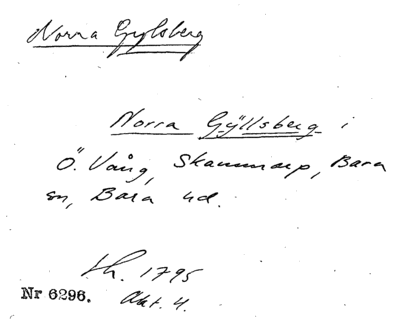 Norra Gylsberg
Norra Gÿllsberg i
Ö. Vång, Skammarp, Bara
sn, Bara hd.
Sk. 1795
Nr 6296. Akt. 4.